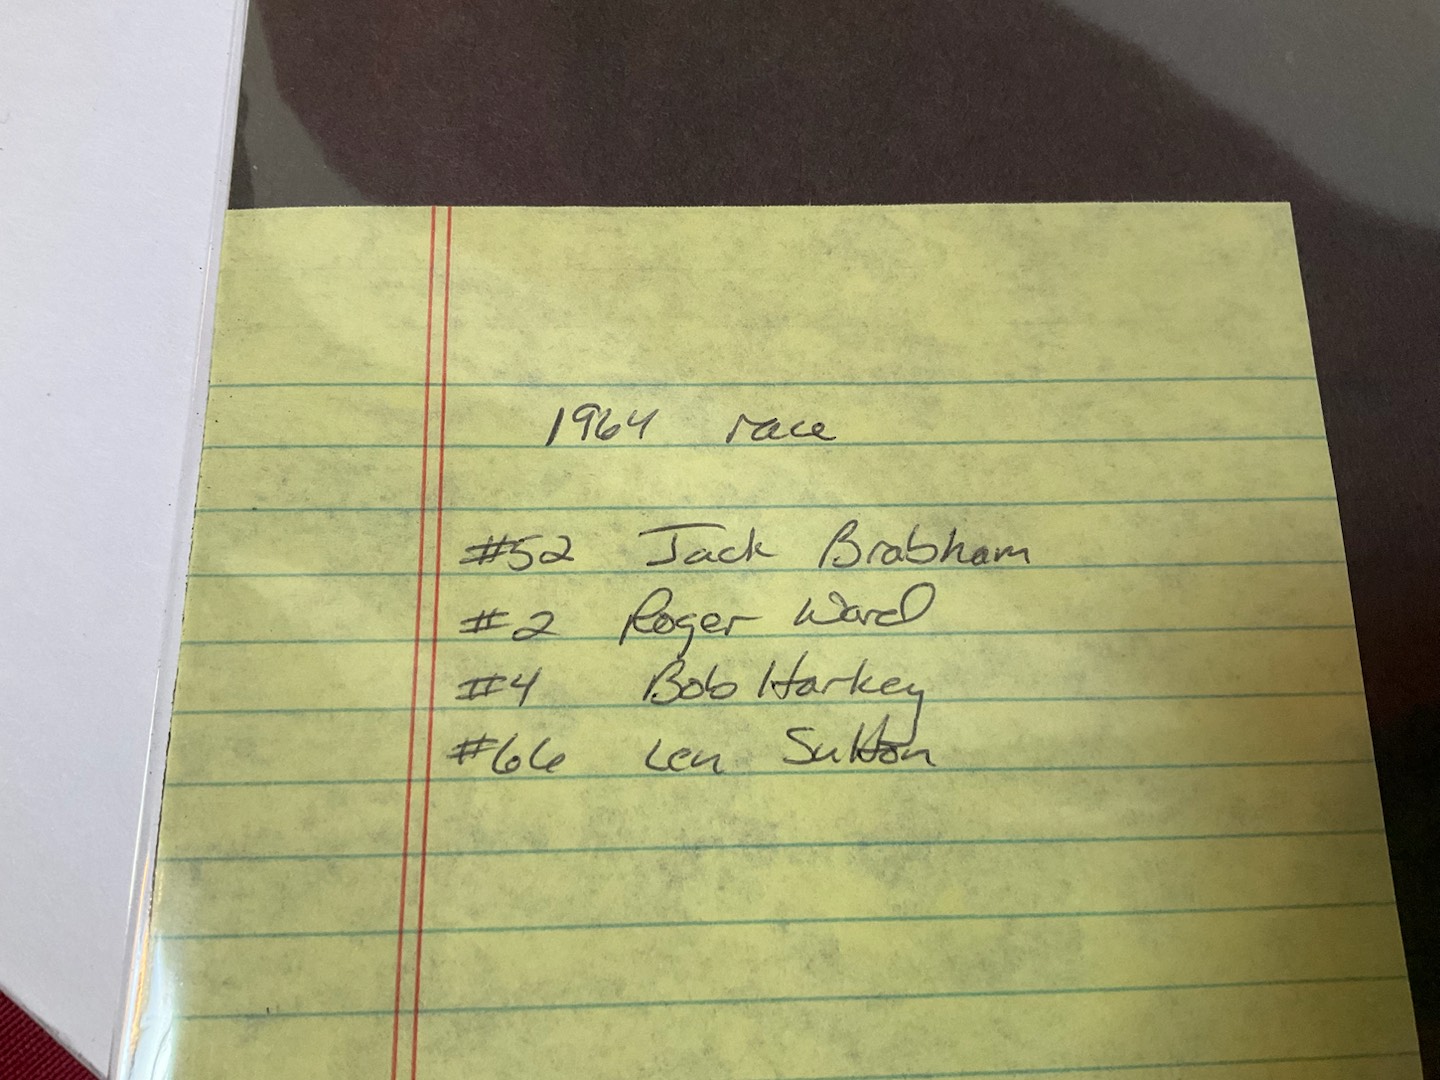 1964 race
#52 Jack Brabham
#2 Roger Ward
#4 Bob Harkey
#66 Len Sutton